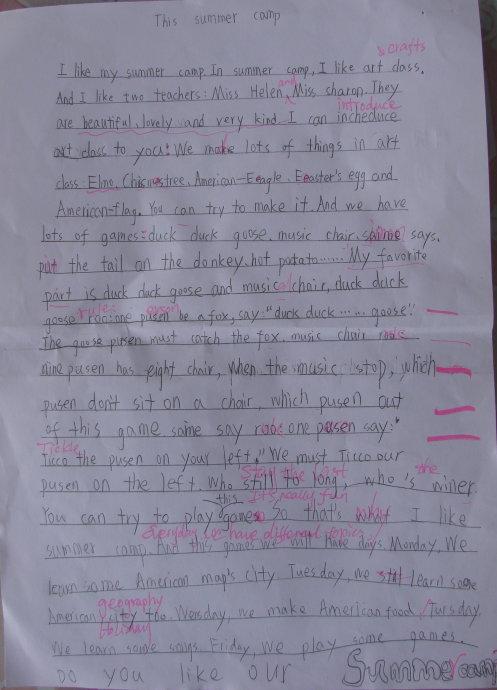 This summer camp
& crafts
I like my summer camp. In summer camp, I like art class.
and
And I like two teachers: Miss Helen, Miss sharon. They
introduce
are beautiful, lovely and very kind. I can incheduce
art class to you: We make lots of things in art
class: Elmo, Chirmestree, American-Eeagle, Eeaster's egg and
American-flag. You can try to make it. And we have
lots of games: duck duck goose, music chair, says,
pin the tail on the donkey, hot potato...... My favorite
part is duck duck goose and musical chair, duck duck
rule: person
goose one pusen be a fox, say: "duck duck ...... goose".
The goose pusen must catch the fox. music chair
nine pusen has eight chair, when the music stop, which
pusen don't sit on a chair, which pusen out
of this game. some say one pusen say: "
Tickle
Ticco the pusen on your left." We must Ticco our
Stay the last the
pusen on the left. Who still to long, who's winer.
this It's really fun
You can try to play games. So that's what I like
Everyday we have different topics:
summer camp. And this games we will have days. Monday, We
learn some American map's city. Tuesday, we learn some
geography
American city too. Wersday, we make American food, Tursday,
Holiday
We learn some songs. Friday, We play some games.
Do you like our Summer camp